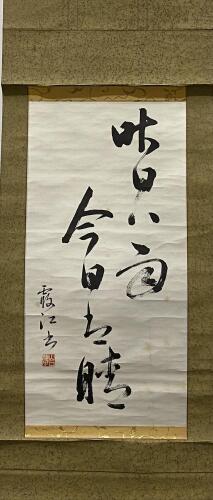 昨日ハ雨
今日者晴
霞江書